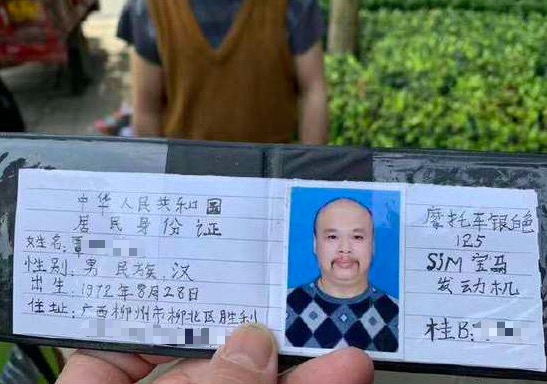 中华人民共和国
居民身份证
姓名:
性别:男 民族:汉
出生:1972年8月28日
住址:广西柳州市柳北区胜利
摩托车银色
125
SiM 宝马
发动机
桂B: